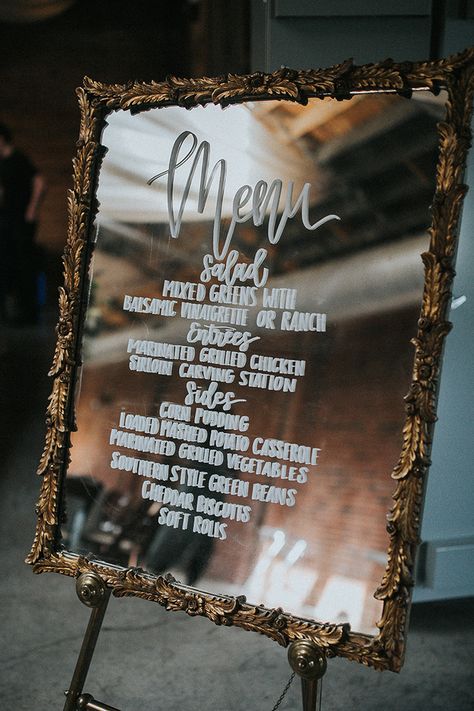 Menu
Salad
MIXED GREENS WITH
BALSAMIC VINAIGRETTE OR RANCH
Entrées
MARINATED GRILLED CHICKEN
SIRLOIN CARVING STATION
Sides
CORN PUDDING
LOADED MASHED POTATO CASSEROLE
MARINATED GRILLED VEGETABLES
SOUTHERN STYLE GREEN BEANS
CHEDDAR BISCUITS
SOFT ROLLS